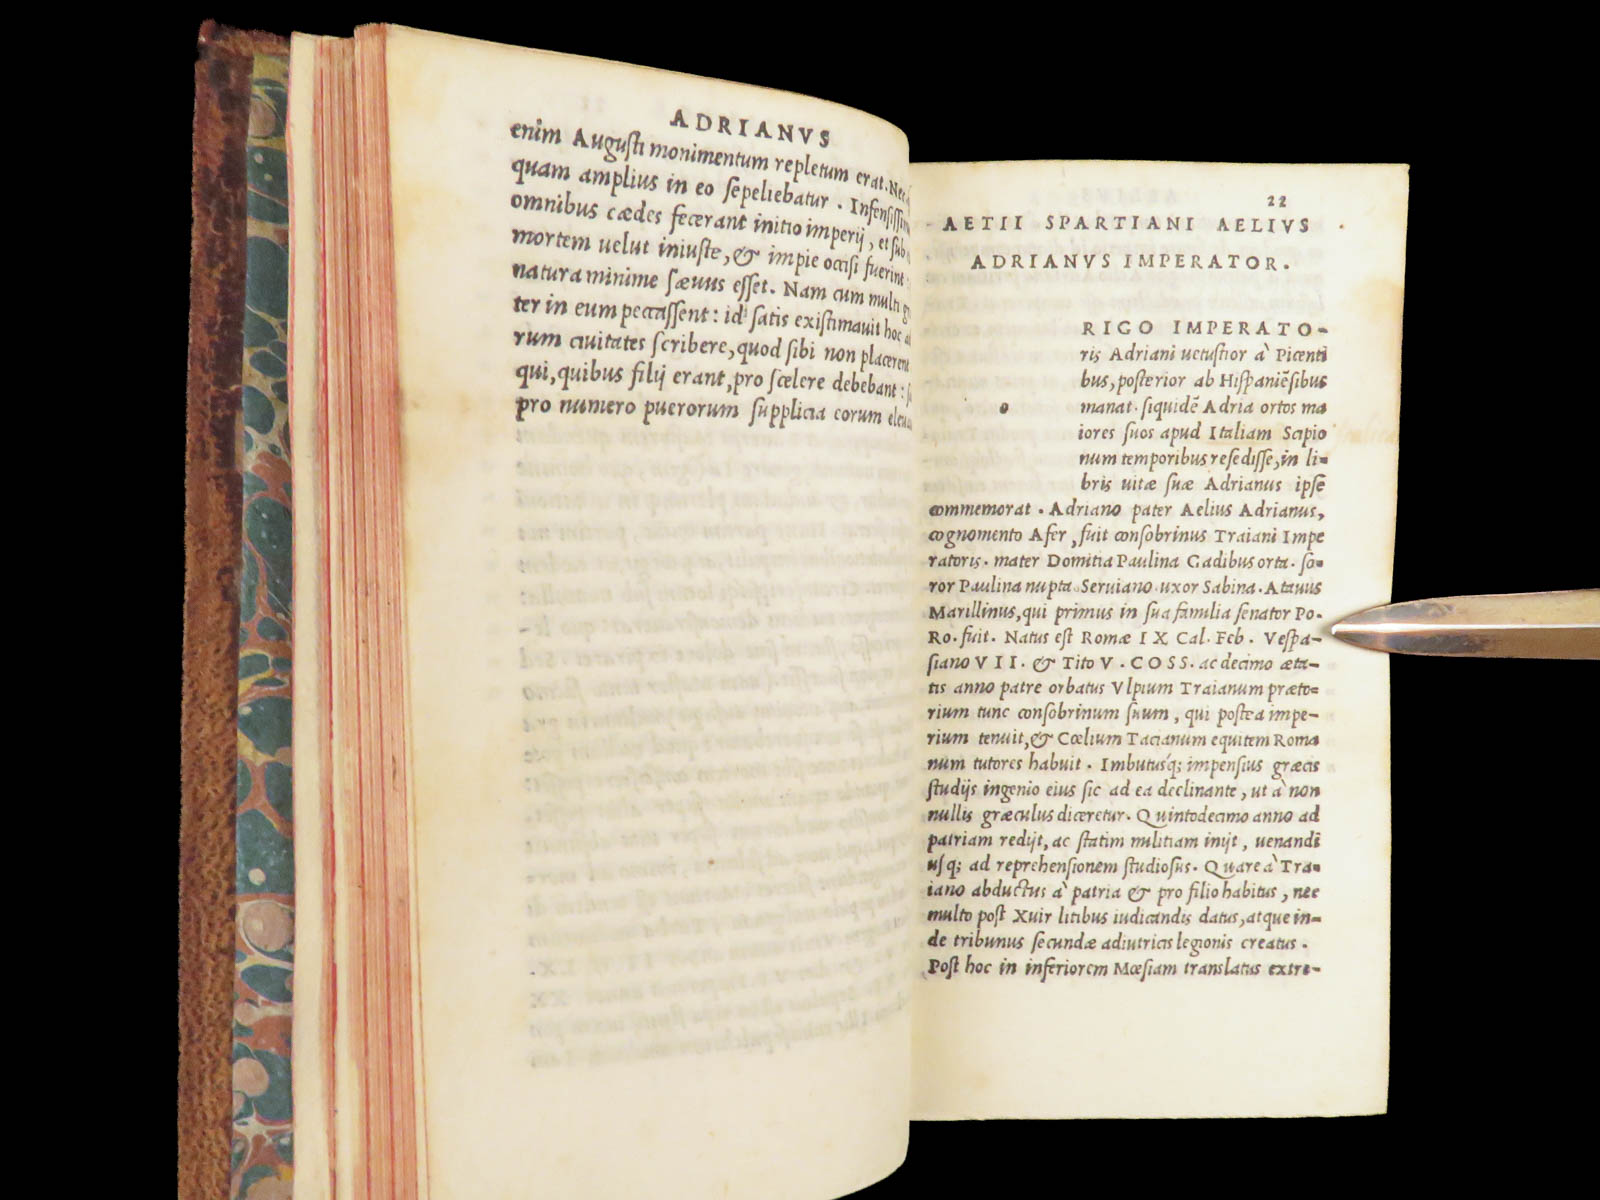 ADRIANVS
enim Augusti monimentum repletum erat. Nec
quam amplius in eo sepeliebatur. Infensissim
omnibus cædes fecerant initio imperij, et sub
mortem uelut iniuste, & impie occisi fuerint:
natura minime sæuus esset. Nam cum multi gr
ter in eum peccassent: id satis existimauit hoc a
rum ciuitates scribere, quod sibi non placerent
qui, quibus filij erant, pro scelere debebant: s
pro numero puerorum supplicia eorum eleua
22
AETII SPARTIANI AELIVS
ADRIANVS IMPERATOR.
o
RIGO IMPERATO-
ris Adriani uetustior à Picenti
bus, posterior ab Hispaniẽsibus
manat. siquidẽ Adria ortos ma
iores suos apud Italiam Scipio
num temporibus resedisse, in li-
bris uitæ suæ Adrianus ipse
commemorat. Adriano pater Aelius Adrianus,
cognomento Afer, fuit consobrinus Traiani Impe
ratoris. mater Domitia Paulina Gadibus orta. so-
ror Paulina nupta Seruiano. uxor Sabina. Atauus
Marillinus, qui primus in sua familia senator Po.
Ro. fuit. Natus est Romæ IX Cal. Feb. Vespa-
siano VII. & Tito V. COSS. ac decimo æta-
tis anno patre orbatus Vlpium Traianum præto-
rium tunc consobrinum suum, qui postea impe-
rium tenuit, & Cœlium Tacianum equitem Roma
num tutores habuit. Imbutusq; impensius græcis
studijs ingenio eius sic ad ea declinante, ut à non
nullis græculus diceretur. Quintodecimo anno ad
patriam redijt, ac statim militiam inijt, uenandi
usq; ad reprehensionem studiosus. Quare à Tra-
iano abductus à patria & pro filio habitus, nec
multo post Xuir litibus iudicandis datus, atque in-
de tribunus secundæ adiutricis legionis creatus.
Post hoc in inferiorem Mœsiam translatus extre-